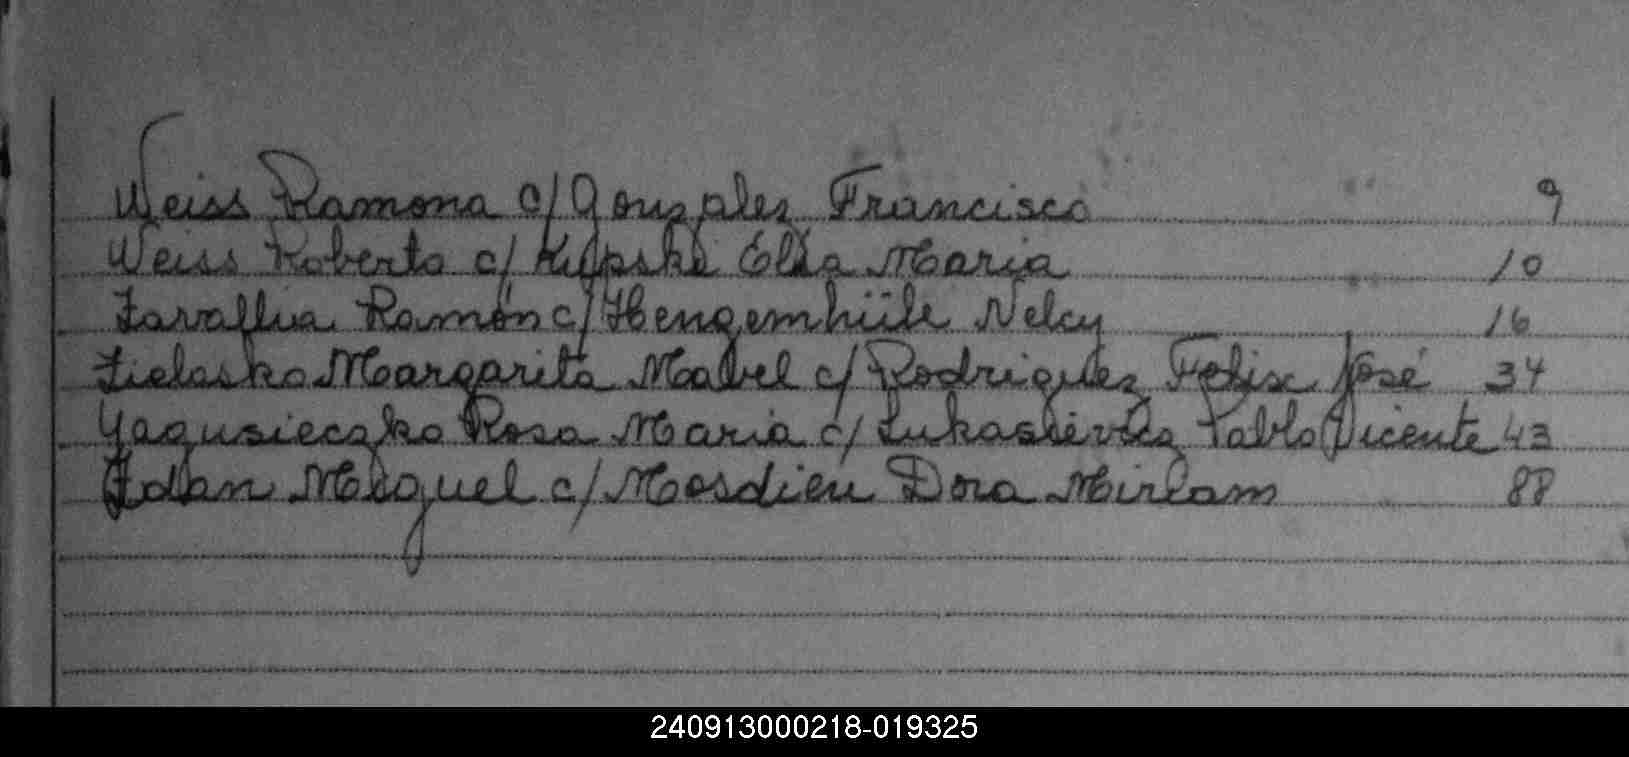 Weiss Ramona c/ Gonzalez Francisco 9
Weiss Roberto c/ Kupski Elsa Maria 10
Ramón c/ Hengemhüle Nelcy 16
Zielasko Margarita Mabel c/ Rodriguez Felix José 34
Yagusieczko Rosa Maria c/ Lukasievicz Pablo Vicente 43
Miguel c/ Mosdieu Dora Miriam 88
240913000218-019325